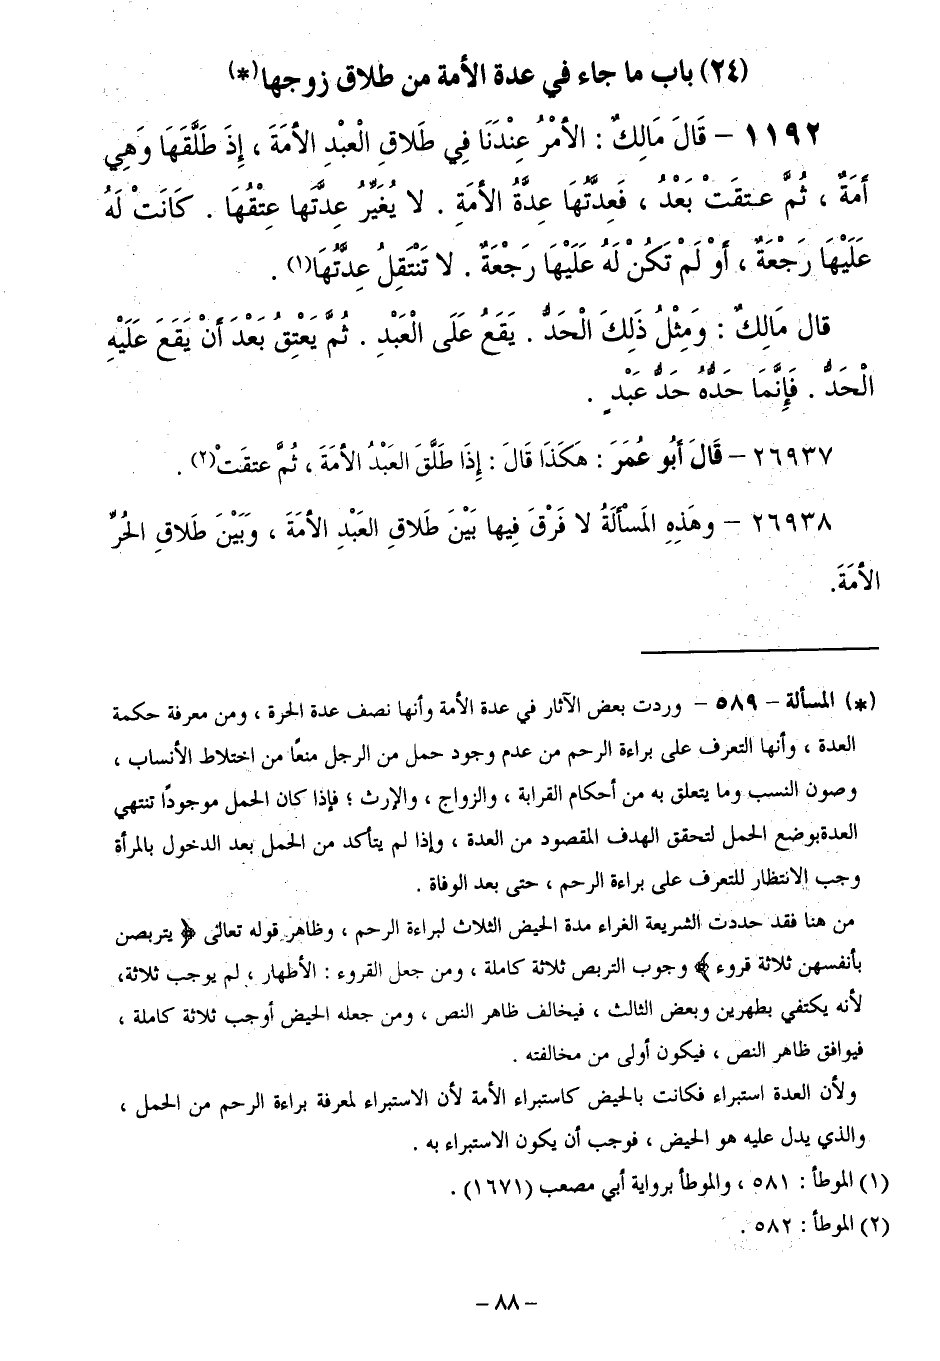 (٢٤) باب ما جاء في عدة الأمة من طلاق زوجها(*)
١١٩٢ – قَالَ مَالِكٌ : الأَمْرُ عِنْدَنَا فِي طَلاقِ الْعَبْدِ الأَمَةَ ، إِذَ طَلَّقَهَا وَهِي
أَمَةٌ ، ثُمَّ عـتقَتْ بَعْدُ ، فَعِدَّتُهَا عِدَّةُ الأَمَةِ . لا يُغَيِّرُ عِدَّتَها عِتْقُهَا . كَانَتْ لَهُ
عَلَيْهَا رَجْعَةٌ ، أَوْ لَمْ تَكُنْ لَهُ عَلَيْهَا رَجْعَةٌ . لا تَنْتَقِلُ عِدَّتُهَا(١) .
قال مَالِكٌ : وَمِثْلُ ذَلِكَ الْحَدُّ . يَقَعُ عَلَى الْعَبْدِ . ثُمَّ يَعْتِقُ بَعْدَ أَنْ يَقَعَ عَلَيْهِ
الْحَدُّ . فَإِنَّمَا حَدُّهُ حَدُّ عَبْدٍ .
٢٦٩٣٧ – قَالَ أَبُو عُمَرَ : هَكَذَا قَالَ : إِذَا طَلَّقَ العَبْدُ الأمَةَ ، ثُمَّ عتقَتْ(٢) .
٢٦٩٣٨ – وهَذِهِ المَسْأَلَةُ لا فَرْقَ فِيها بَيْنَ طَلاقِ العَبْدِ الأمَةَ ، وَبَيْنَ طَلاقِ الحُرِّ
الأمَةَ.
(*) المسألة – ٥٨٩ – وردت بعض الآثار في عدة الأمة وأنها نصف عدة الحرة ، ومن معرفة حكمة
العدة ، وأنها التعرف على براءة الرحم من عدم وجود حمل من الرجل منعًا من اختلاط الأنساب ،
وصون النسب وما يتعلق به من أحكام القرابة ، والزواج ، والإرث ؛ فإذا كان الحمل موجودًا تنتهي
العدةبوضع الحمل لتحقق الهدف المقصود من العدة ، وإذا لم يتأكد من الحمل بعد الدخول بالمرأة
وجب الانتظار للتعرف على براءة الرحم ، حتى بعد الوفاة .
من هنا فقد حددت الشريعة الغراء مدة الحيض الثلاث لبراءة الرحم ، وظاهر قوله تعالى ﴿ يتربصن
بأنفسهن ثلاثة قروء ﴾ وجوب التربص ثلاثة كاملة ، ومن جعل القروء : الأطهار ، لم يوجب ثلاثة،
لأنه يكتفي بطهرين وبعض الثالث ، فيخالف ظاهر النص ، ومن جعله الحيض أوجب ثلاثة كاملة ،
فيوافق ظاهر النص ، فيكون أولى من مخالفته .
ولأن العدة استبراء فكانت بالحيض كاستبراء الأمة لأن الاستبراء لمعرفة براءة الرحم من الحمل ،
والذي يدل عليه هو الحيض ، فوجب أن يكون الاستبراء به .
(١) الموطأ : ٥٨١ ، والموطأ برواية أبي مصعب (١٦٧١) .
(٢) الموطأ : ٥٨٢ .
– ٨٨ –